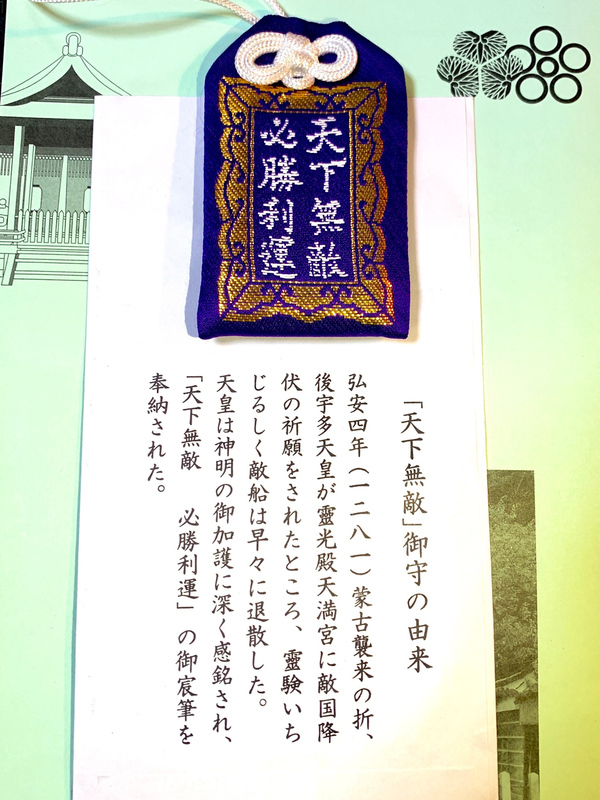 天下無敵
必勝利運
「天下無敵」御守の由来
弘安四年（一二八一）蒙古襲来の折、
後宇多天皇が靈光殿天満宮に敵国降
伏の祈願をされたところ、靈験いち
じるしく敵船は早々に退散した。
天皇は神明の御加護に深く感銘され、
「天下無敵　必勝利運」の御宸筆を
奉納された。